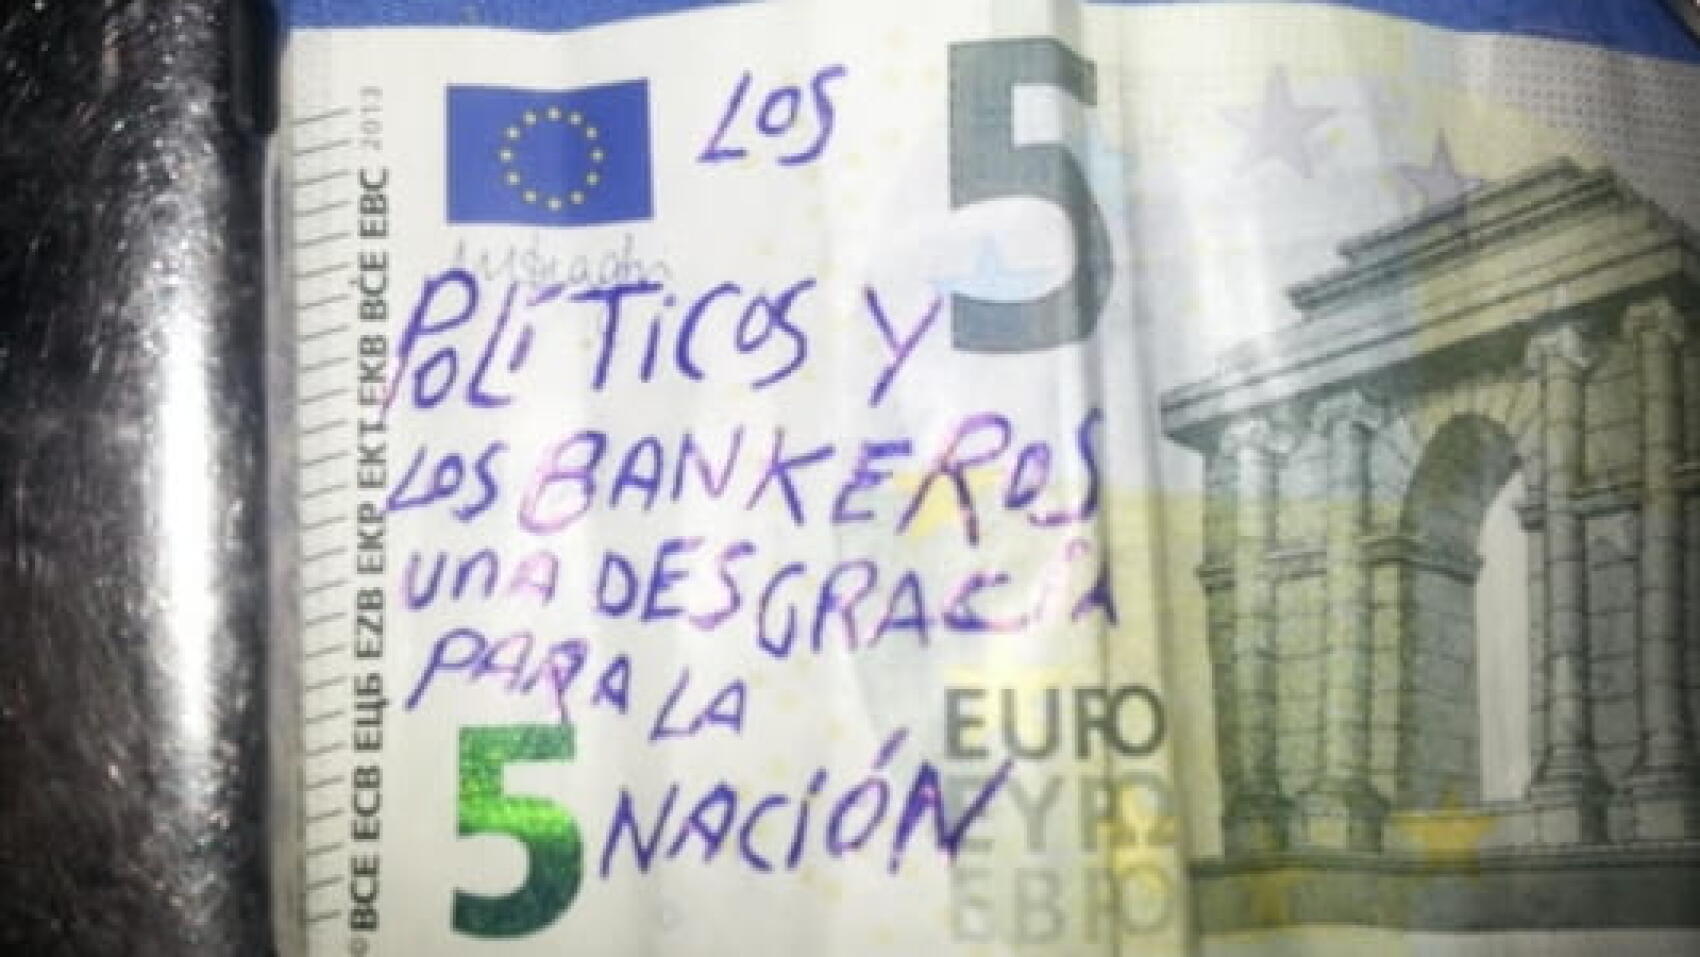 LOS
5
POLÍTICOS Y
LOS BANKEROS
UNA DESGRACIA
PARA LA
5 NACIÓN
EURO
EYPΩ
ЕВРО
©BCE ECB ЕЦБ EZB EKP EKT EKB BĊE EBC 2013